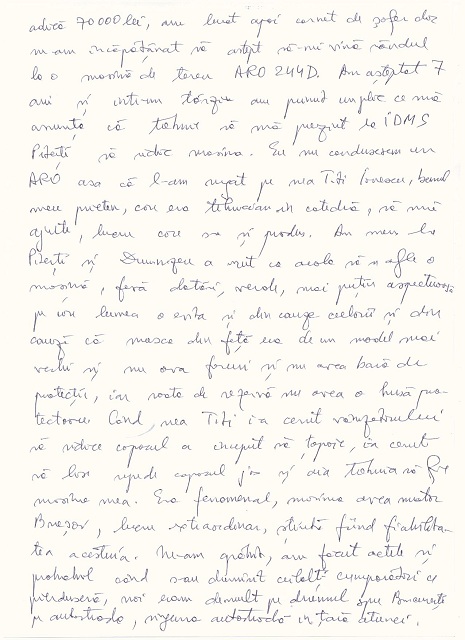 adică 70000 lei, am luat apoi carnet de șofer dar
m-am încăpățînat să aștept să-mi vină rândul
la o mașină de teren ARO 244D. Am așteptat 7
ani și într-un târziu am primit un plic ce mă
anunța că trebuie să mă prezint la IDMS
Pitești să ridic mașina. Eu nu condusesem un
ARO așa că l-am rugat pe nea Titi Ionescu, bunul
meu prieten, care era tehnician în catedră, să mă
ajute, lucru care s-a și produs. Am mers la
Pitești și Dumnezeu a vrut ca acolo să se afle o
mașină, fără dotări, verde, mai puțin aspectuoasă
pe care lumea o evita și din cauza culorii și din
cauză că masca din față era de un model mai
vechi și nu avea faruri și nu avea bară de
protecție, iar roata de rezervă nu avea o husă pro-
tectoare. Când, nea Titi i-a cerut vânzătorului
să ridice capota a început să țopăie, i-a cerut
să lase repede capota jos și zis trebuie să fie
mașina mea. Era fenomenal, mașina avea motor
Brașov, lucru extraordinar, știută fiind fiabilita-
tea acestuia. Ne-am grăbit, am făcut actele și
probabil când s-au dumirit ceilalți cumpărători ce
pierduseră, noi eram demult pe drumul spre București
pe autostradă, singura autostradă în țară atunci.